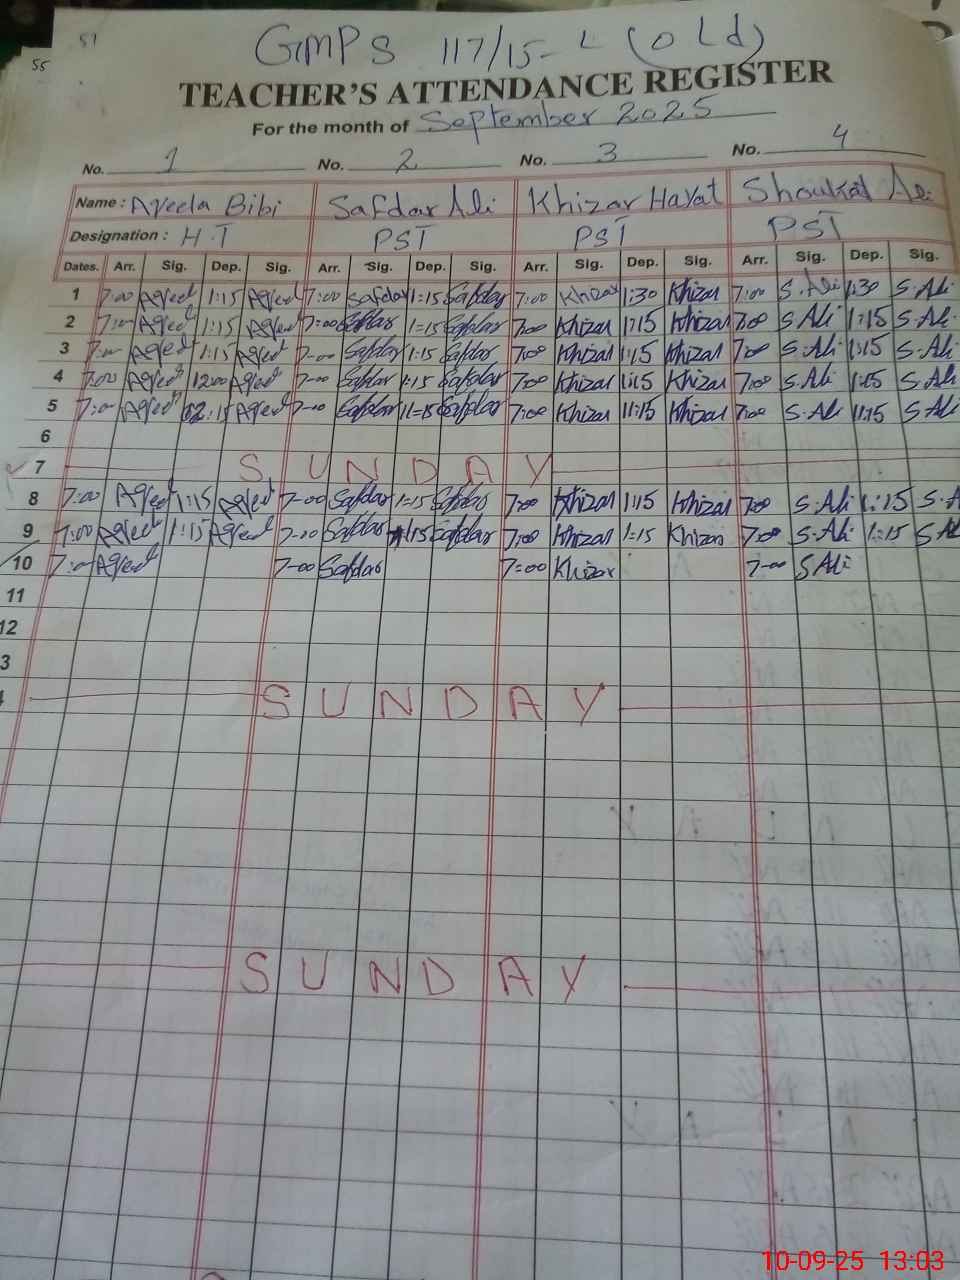 51
55
GMPS 117/15-L (old)
TEACHER'S ATTENDANCE REGISTER
For the month of September 2025
No. 1 No. 2 No. 3 No. 4
Name : Aqeela Bibi Safdar Ali Khizar Hayat Shoukat Ali
Designation : H.T PST PST PST
Dates. Arr. Sig. Dep. Sig. Arr. Sig. Dep. Sig. Arr. Sig. Dep. Sig. Arr. Sig. Dep. Sig.
1 7:00 Aqeel 1:15 Aqeel 7:00 Safdar 1:15 Safdar 7:00 Khizar 1:30 Khizar 7:00 S.Ali 1:30 S.Ali
2 7:00 Aqeel 1:15 Aqeel 7:00 Safdar 1:15 Safdar 7:00 Khizar 1:15 Khizar 7:00 S Ali 1:15 S.Ali
3 7:00 Aqeel 1:15 Aqeel 7-00 Safdar 1:15 Safdar 7:00 Khizar 1:15 Khizar 7:00 S.Ali 1:15 S.Ali
4 7:00 Aqeel 12:00 Aqeel 7-00 Safdar 1:15 Safdar 7:00 Khizar 1:15 Khizar 7:00 S.Ali 1:15 S.Ali
5 7:00 Aqeel 12:15 Aqeel 7-00 Safdar 11:15 Safdar 7:00 Khizar 11:15 Khizar 7:00 S.Ali 11:15 S.Ali
6
7 SUNDAY
8 7:00 Aqeel 1:15 Aqeel 7-00 Safdar 1:15 Safdar 7:00 Khizar 1:15 Khizar 7:00 S.Ali 1:15 S.A
9 7:00 Aqeel 1:15 Aqeel 7-00 Safdar 1:15 Safdar 7:00 Khizar 1:15 Khizar 7:00 S.Ali 1:15 S Al
10 7:00 Aqeel 7-00 Safdar 7:00 Khizar 7-00 S Ali
11
12
3
SUNDAY
SUNDAY
10-09-25 13:03